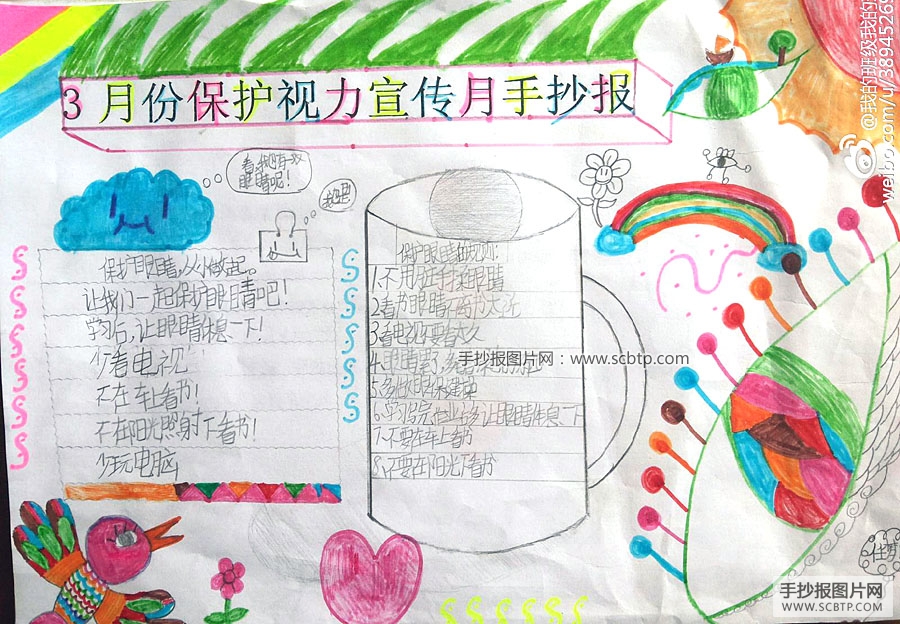 3月份保护视力宣传月手抄报
看,我有一双
眼睛呢!
我也是
保护眼睛,从小做起。
让我们一起保护眼睛吧!
学习后,让眼睛休息一下!
少看电视
不在车上看书!
不在阳光照射下看书!
少玩电脑
保护眼睛的规则:
1.不用脏手揉眼睛
2.看书眼睛不离书太近
3.看电视不要看太久
4.眼睛累了,多看绿色
5.多做眼保健操
6.学习完作业后多让眼睛休息一下
7.不要在车上看书
8.不要在阳光下看书
手抄报图片网:www.scbtp.com
@我的班级我的
weibo.com/u/38945269
手抄报图片网
WWW.SCBTP.COM